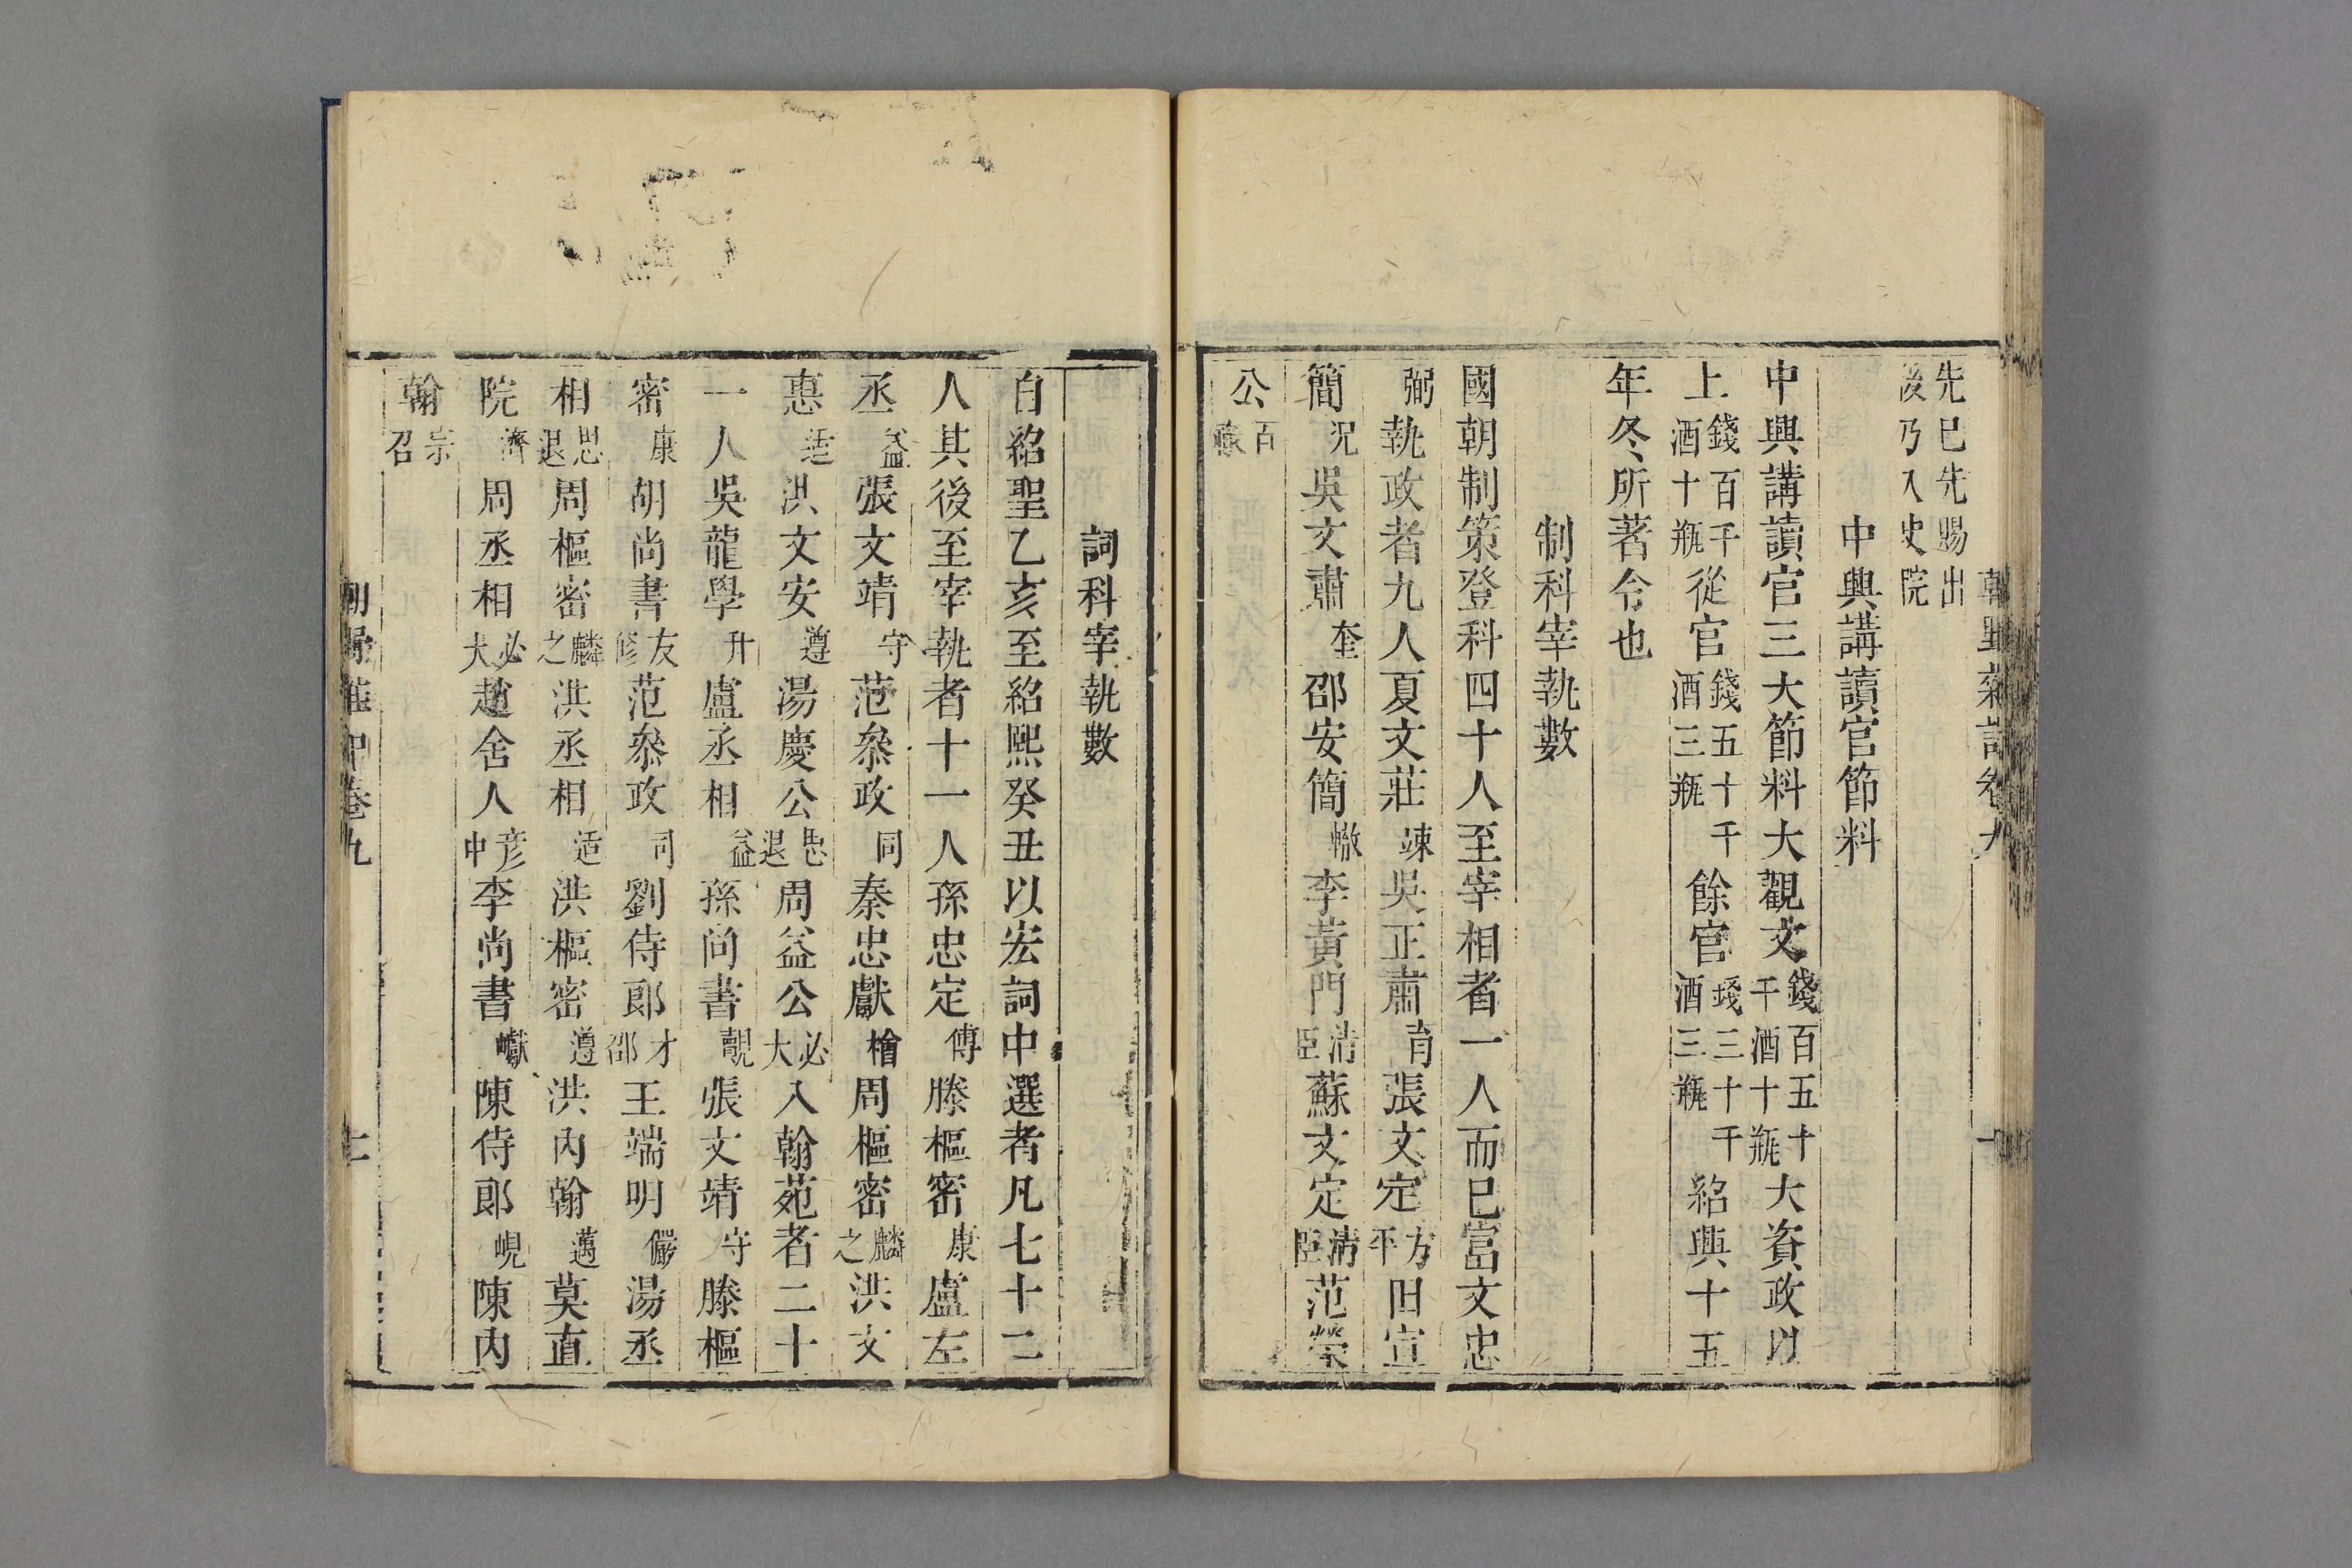 先已先賜出
後乃入史院
中興講讀官節料
中興講讀官三大節料大觀文錢百五十千酒十瓶大資政以
上錢百千酒十瓶從官錢五十千酒三瓶餘官錢三十千酒三瓶紹興十五
年冬所著令也
制科宰執數
國朝制策登科四十人至宰相者一人而已富文忠
弼執政者九人夏文莊竦吳正肅育張文定方平田宣
簡况吳文肅奎邵安簡轍李黃門清臣蘇文定清臣范榮
公百祿
詞科宰執數
自紹聖乙亥至紹熙癸丑以宏詞中選者凡七十二
人其後至宰執者十一人孫忠定傅滕樞密康盧左
丞益張文靖守范叅政同秦忠獻檜周樞密麟之洪文
惠适洪文安遵湯慶公思退周益公必大入翰苑者二十
一人吳龍學幵盧丞相益孫尚書覿張文靖守滕樞
密康胡尚書友修范叅政同劉侍郎才邵王端明儼湯丞
相思退周樞密麟之洪丞相适洪樞密遵洪內翰邁莫直
院濟周丞相必大趙舍人彦中李尚書巘陳侍郎峴陳內
翰宗召
朝野雜記卷九